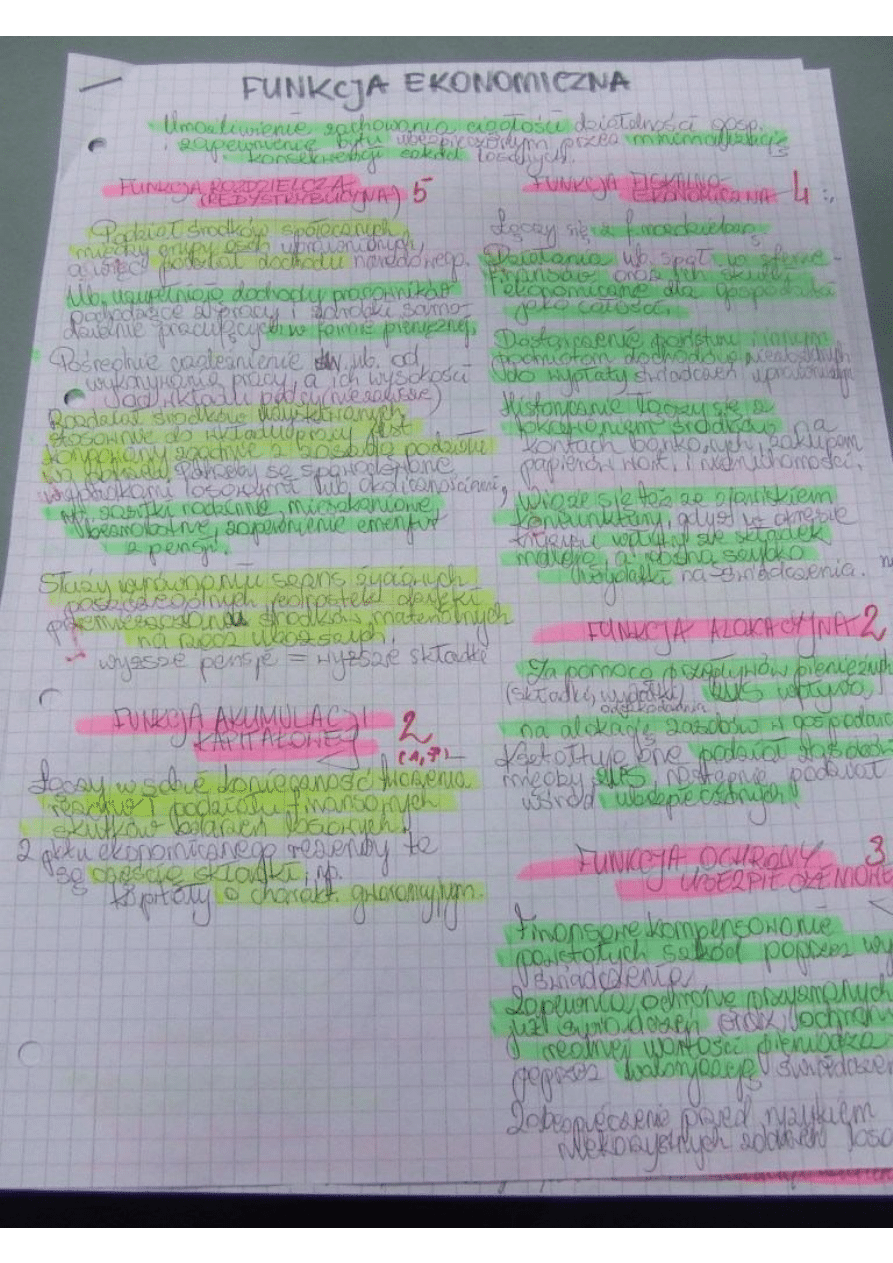 FUNKCJA EKONOMICZNA
Umożliwienie zachowania ciągłości działalności gosp.
i zapewnienie bytu ubezpieczonym przez minimalizację
konsekwencji zdarzeń losowych.
FUNKCJA ROZDZIELCZA
(REDYSTRYBUCYJNA) 5
Podział środków społecznych
między grupy osób uprawnionych,
a więc podział dochodu narodowego.
Ub. uzupełniają dochody pracowników
pochodzące z pracy i zarobki samo-
dzielnie pracujących w formie pieniężnej.
Pośrednie uzależnienie św. ub. od
wykonywania pracy, a ich wysokości
od wkładu pracy (nie zawsze)
Rozdział środków uzyskiwanych
stosownie do wkładu pracy jest
korygowany zgodnie z zasadą podziału
wg potrzeb. Potrzeby są spowodowane
wypadkami losowymi lub okolicznościami,
np. zasiłki rodzinne, mieszkaniowe,
bezrobotne, zapewnienie emerytur
z pensji.
Służy wyrównaniu szans życiowych
poszczególnych jednostek dzięki
przemieszczaniu środków materialnych
na rzecz uboższych.
wyższe pensje = wyższe składki
FUNKCJA AKUMULACJI 2
KAPITAŁOWEJ (1,7)
Łączy w sobie tworzenia
rezerw i podziału finansowych
skutków zdarzeń losowych
Z pktu ekonomicznego rezerwy te
są częścią składki, np.
kapitały o charakt. gwarancyjnym.
FUNKCJA FISKALNO-
EKONOMICZNA 4
Łączy się z f. rozdzielczą
Działania ub. społ. w sferze
finansów oraz ich skutki
ekonomiczne dla gospodarki
jako całości.
Dostarczenie państwu i innym
podmiotom dochodów niezbędnych
do wypłaty świadczeń uprawnionym
Historycznie łączy się z
lokowaniem środków na
kontach bankowych, zakupem
papierów wart. i nieruchomości.
Wiąże się też ze zjawiskiem
koniunktury, gdyż w okresie
kryzysu wpływy ze składek
maleją, a rosną szybko
wydatki na świadczenia.
FUNKCJA ALOKACYJNA 2
Za pomocą przepływów pieniężnych
(składki, wypłatki) ZUS wpływa
odszkodowania
na alokację zasobów w gospodar
Kształtuje one podział zasobów
między ZUS, następnie podział
wśród ubezpieczonych.
FUNKCJA OCHRONY 3
UBEZPIECZENIOWE
Finansowe kompensowanie
powstałych szkód poprzez wy
świadczenie
Zapewnia ochronę przyznanych
już świadczeń oraz ochrania
realnej wartości pieniądza
poprzez waloryzację świadczeń
Zabezpieczenie przed ryzykiem
niekorzystnych zdarzeń loso